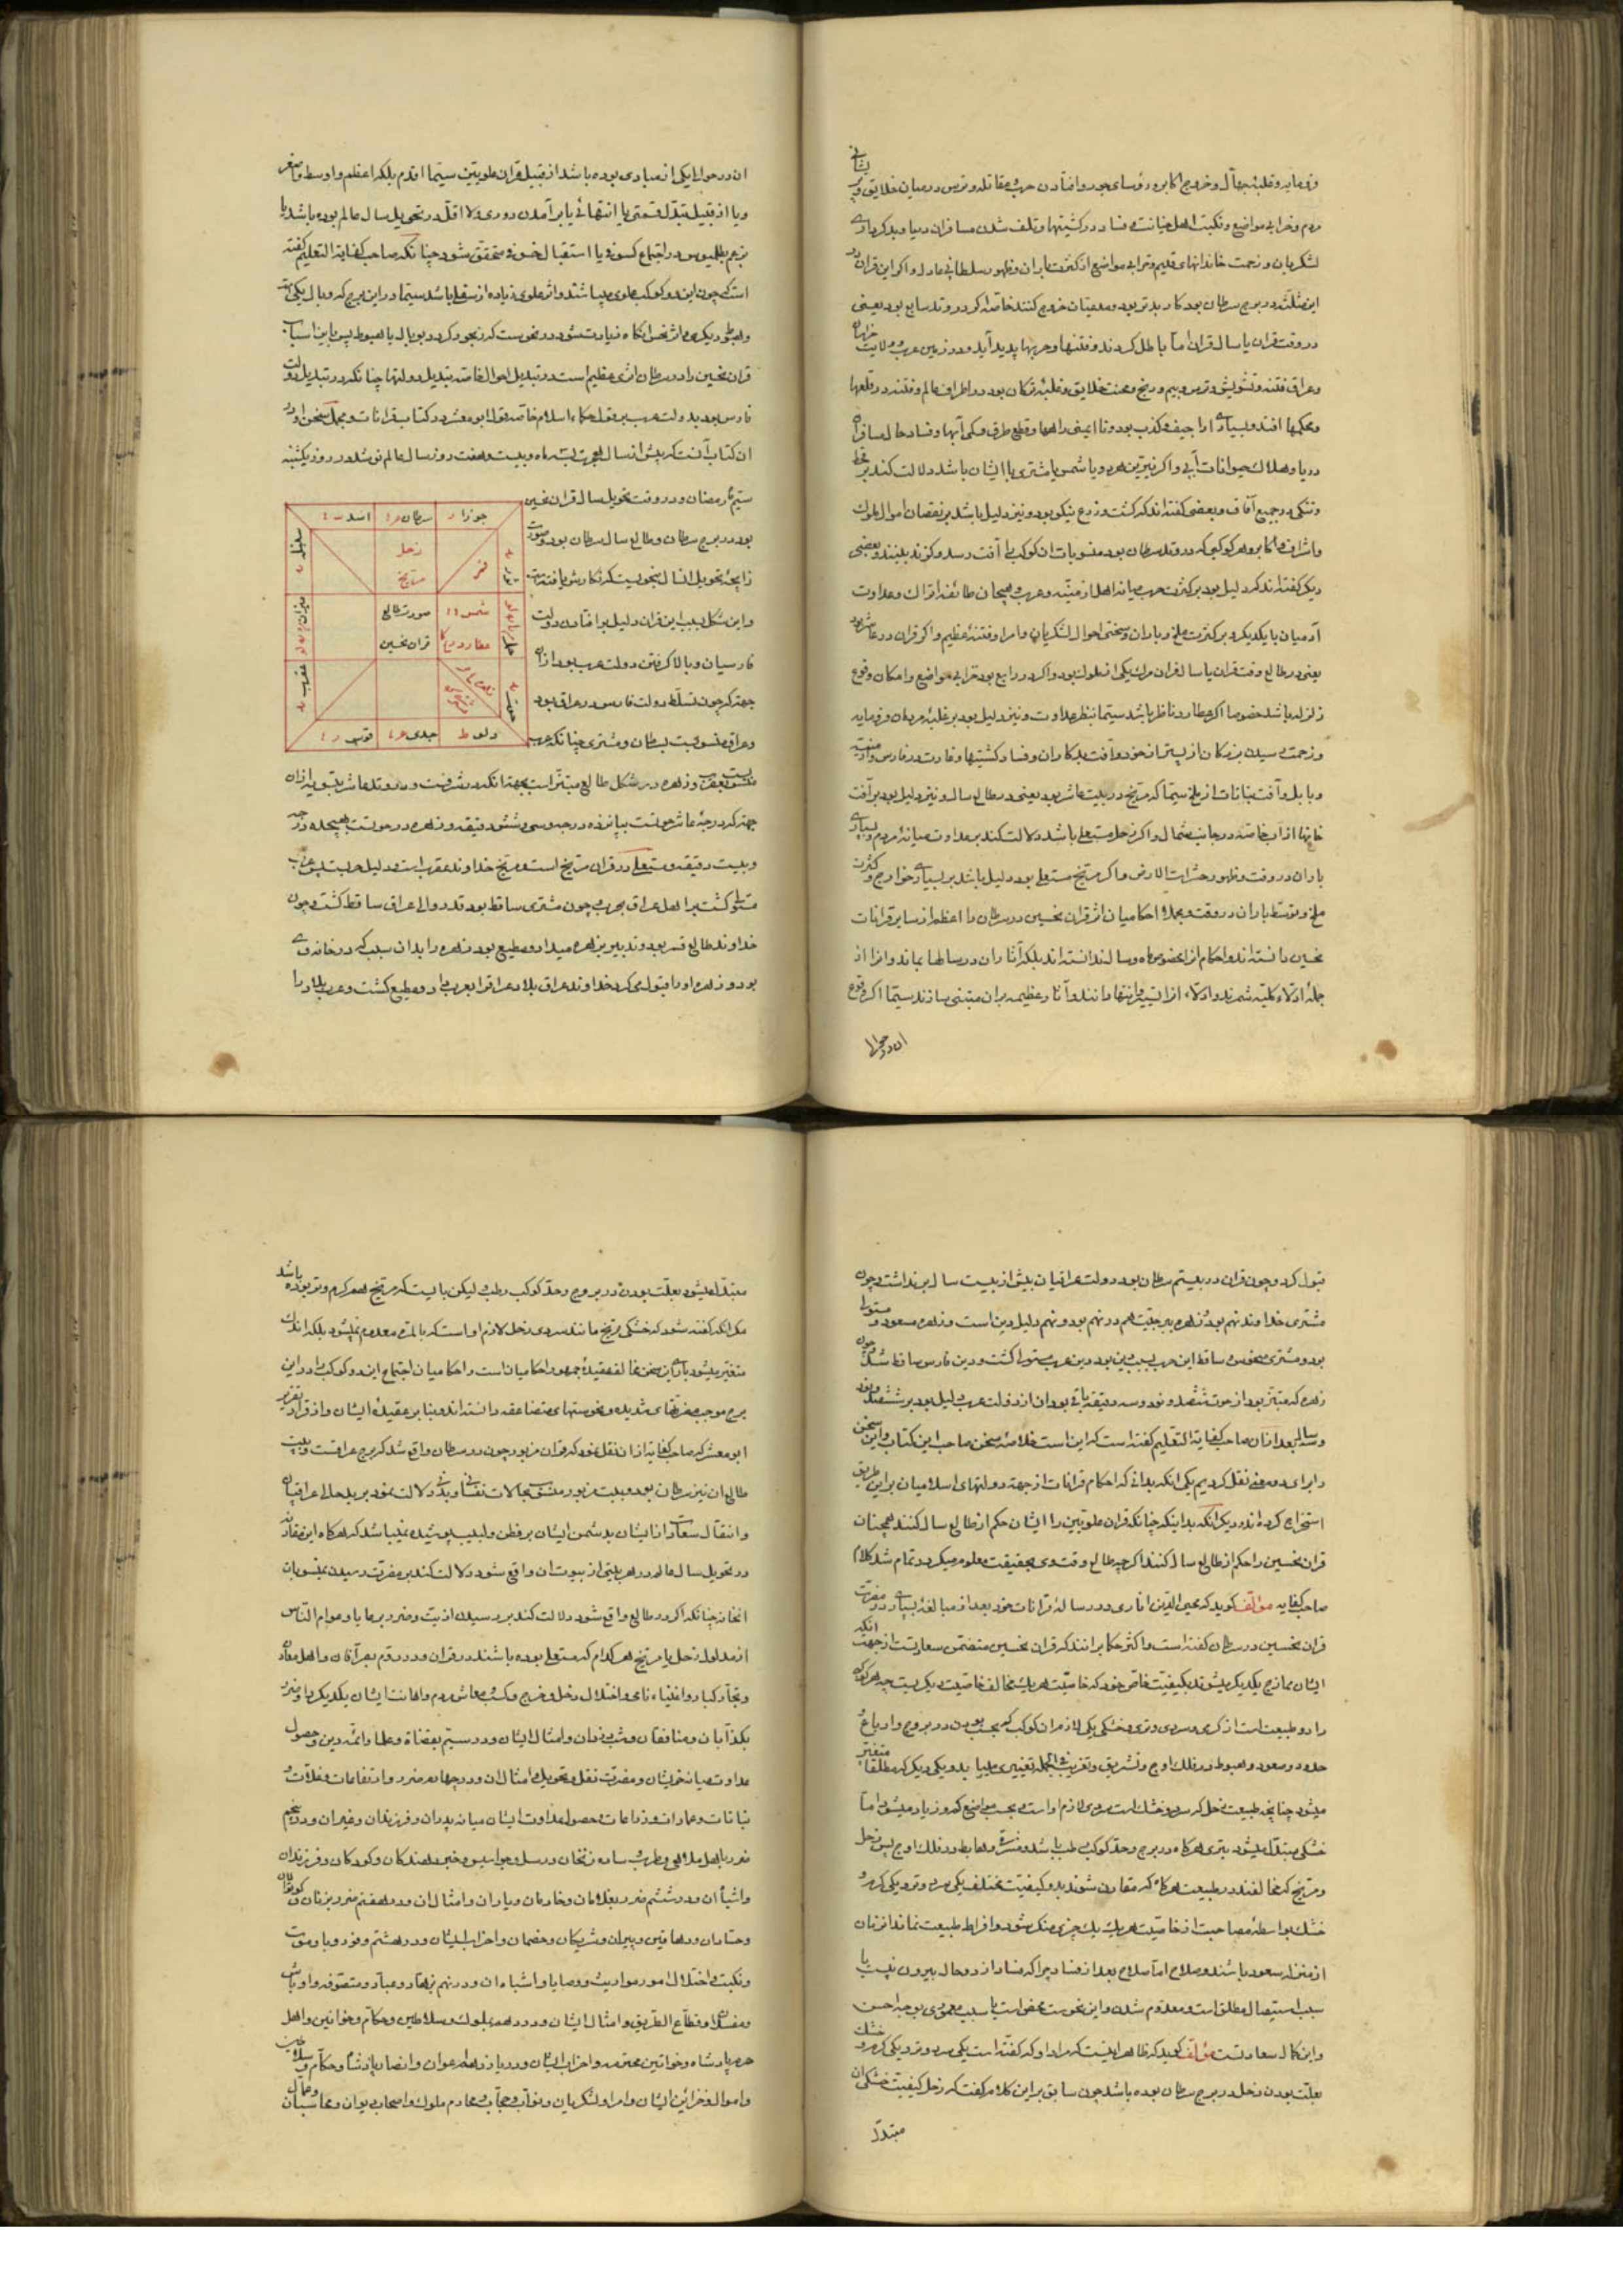 وفرمایه وغلبهٔ جهال وخروج اکابر ورؤسای بجور وافتادن حرب ومقاتله وترس در میان خلایق
مردم وخرابی مواضع ونکبت اهل خیانت وفساد در کشتیها وتلف شدن مسافران دریا وبدکرداری
لشکریان وزحمت خاندانهای قدیم وخرابی مواضع از کثرت باران وظهور سلطانی عادل واکر این قران در
این مثلثه در برج سرطان بود کار بدتر بود ومدعیان خروج کنند خاصه اکر در وتد سابع بود یعنی
در وقت قران یا سال قران اما باطل کردند وفتنها وحربها پدید آید ودر زمین عرب وولایت
وعراق فتنه وتشویش وترس وبیم ورنج ومحنت خلایق وغلبهٔ ترکان بود در اطراف عالم وفتنه در قلعها
ومحکمها افتد وبسیاری اراجیف وکذب بود وناایمنی راهها وقطع طرق وکمی آبها وفساد حال مسافران
دریا وهلاک حیوانات آبی واکر نیرین هر دو یا شمس یا مشتری با ایشان باشد دلالت کند بر قحط
وتنکی در جمیع آفاق وبعضی کفته اند که کشت وزرع نیکو بود ونیز دلیل باشد بر نقصان اموال ملوک
واشراف واکابر وهر کوکبی که در وتد سرطان بود منسوبات ان کوکب را آفت رسد وکزند بینند وبعضی
دیکر کفته اند که دلیل بود بر کثرت حرب میانه اهل ارمنیه وعرب وهیجان طائفه اتراک وعداوت
آدمیان با یکدیکر وبر کثرت ملخ وباران وسختی احوال لشکریان وامرا وفتنهٔ عظیم واکر قران در عاشر بود
یعنی در طالع وقت قران یا سال قران مرک یکی از ملوک بود واکر در رابع بود خرابی مواضع وامکان وقوع
زلزله باشد خصوصا اکر عطارد ناظر باشد سیتما بنظر عداوت ونیز دلیل بود بر غلبهٔ مردمان فرومایه
وزحمت رسیدن بزرکان از پستر از خود وآفت بدکاران وفساد کشتیها وغارت در فارس وارمنیه
وبابل وآفت نباتات از ملخ سیتما که مریخ در بیت عاشر بود یعنی در طالع سال ونیز دلیل بود بر آفت
خانها از آب خاصه در جانب شمال واکر زحل مستعلی باشد دلالت کند بر عداوت میانهٔ مردم وبسیاری
باران در وقت وظهور حشرات الارض واکر مریخ مستعلی بود دلیل باشد بر بسیاری خوارج وکثرت
ملخ وتوسط باران در وقت وبجمله احکامیان اثر قران نحسین در سرطان را اعظم از سایر قرانات
نحسین دانسته اند واحکام انرا مخصوص ماه وسال ندانسته اند بلکه آثار ان در سالها بماند وانرا از
جمله ادلاء کلیه شمرند وادلاء وآثار عظیمه بران مبتنی سازند سیتما اکر وقوع
ان در حوالی
ان در حوالی یکی از مبادی بوده باشد از قبیل قران علویین سیتما اقدم بلکه اعظم واوسط واصغر
ویا از قبیل تبدل قسمتی یا انتهائی یا برآمدن دوری ولا اقل در تحویل سال عالم بوده باشد یا
بزعم بطلمیوس در اجتماع کسوفی یا استقبال خسوفی متحقق شود چنانکه صاحب کفایة التعلیم کفته
است که چون این دو کوکب علوی میباشند واثر علوی زیاده از سفلی باشد سیتما در این برج که وبال یکی
وهبوط دیکری واثر نحس انکاه زیادت شود در نحوست که رنجور کردد بوبال یا هبوط پس باین اسباب
قران نحسین را در سرطان اثری عظیم است در تبدیل احوال خاصه تبدیل دولتها چنانکه در تبدیل دولت
فارس بود بدولت عرب بر قول حکماء اسلام خاصه قول ابو معشر در کتاب قرانات ومجمل سخن او در
ان کتاب آنست که پیش از سال هجرت بسه ماه وبیست وهفت روز سال عالم نو شد در روز یکشنبه
سیم رمضان ودر وقت تحویل سال قران نحسین
بود در برج سرطان وطالع سال سرطان بود وصورت
زایجهٔ تحویل انسال بنحویست که نکارش یافته
واین شکل بسبب این قران دلیل بر افتادن دولت
فارسیان وبالا کرفتن دولت عرب بود از ان
جهت که چون تسلط دولت فارس در عراق بود
وعراق منسوبست بسرطان ومشتری چنانکه عرب
جوزا
سرطان
اسد
سنبله
میزان
عقرب
قوس
جدی
دلو
حوت
حمل
ثور
زحل
مریخ
قمر
شمس
عطارد
صورت طالع
قران نحسین
منسوب بعقرب وزهره در شکل طالع مبتز است بجهت انکه در شرفست ودر وتد عاشر بتسویه از ان
جهت که درجهٔ عاشر حوتست بپانزده درجه وسی وشش دقیقه وزهره در حوتست بهیجده درجه
وبیست دقیقه ومستعلی در قران مریخ است ومریخ خداوند عقرب است ودلیل حربست پس عرب
مستولی کشت بر اهل عراق بحرب وچون مشتری ساقط بود قدر والی عراق ساقط کشت وچون
خداوند طالع قمر بود وتدبیر بزهره میداد ومطیع بود زهره را بدان سبب که در خانه وی
بود وزهره او را قبول می کرد خداوند عراق بلاد عراق را بعرب داد ومطیع کشت وعرب بلاد را
قبول کرد وچون قران در بیستم سرطان بود دولت عراقیان بیش از بیست سال بر نداشت وچون
مشتری خداوند نهم بود وزهره ببرجیت هم در نهم بود ونهم دلیل دین است وزهره مسعود ومستولی
بود ومشتری منحوس وساقط این حرب بسبب دین بود ودین عرب مستولی کشت ودین فارس ساقط شد وچون
زهره که مبتز بود از حوت ششصد ونود وسه دقیقه باقی بود ان از دولت عرب دلیل بود بر ششصد ونود
وسه سال بعد از ان صاحب کفایة التعلیم کفته است که این است خلاصهٔ سخن صاحب این کتاب واین سخن
را برای دو معنی نقل کردیم یکی انکه بدانی که احکام قرانات از جهت دولتهای اسلامیان بر این طریق
استخراج کرده اند ودیکر انکه بدانیکه چنانکه قران علویین را ایشان حکم از طالع سال کنند همچنان
قران نحسین را حکم از طالع سال کنند اکرچه طالع وقت وی بحقیقت معلوم میکردد تمام شد کلام
صاحب کفایه مؤلف کوید که محیی الدین اناری در رسالهٔ قرانات خود بعد از مبالغهٔ بسیار در مضرت
قران نحسین در سرطان کفته است واکثر حکما برانند که قران نحسین متضمن سعادتست از جهت انکه
ایشان ممازج یکدیکر میشوند بکیفیت خاص خود که خاصیت هر یک مخالف خاصیت دیکریست چه هر کوکب
را دو طبیعت است از کرمی وسردی وتری وخشکی یکی لازم ان کوکب که بحسب بودن در بروج وارباع
حدود وصعود وهبوط در فلک اوج وتشریق وتغریب فی الجمله تغییری مییابد ویکی دیکر که مطلقا متغیر
میشود چنانچه طبیعت زحل که سرد وخشک است سردی لازم او است وبحسب مواضع کم وزیاد میشود اما
خشکی مبتدل میشود بتری هرکاه در برج وحد کوکب رطب باشد ومشرق وهابط در فلک اوج پس زحل
ومریخ که مخالفند در طبیعت هرکاه که مقارن شوند بدو کیفیت مختلف یکی سرد وتر ودیکری کرم و
خشک بواسطهٔ مصاحبت از خاصیت هر یک یک چیزی منکسر شود وافراط طبیعت نماند
از منزله سعود باشند وصلاح اما صلاح بعد از فساد چرا که فساد از دو حال بیرون نیست یا
سبب استیصال مطلق است ومعدوم شدن واین نحوست محض است یا سبب معموری بوجه احسن
واین کمال سعادتست مؤلف کوید که ظاهر اینست که مراد او که کفته است یکی سرد وتر ودیکری کرم وخشک
بعلت بودن زحل در برج سرطان بوده باشد چون سابق بر این کلام کفت که زحل کیفیت خشکی ان
مبتدل
مبتدل میشود بعلت بودن در بروج وحد کوکب رطب لیکن بایست که مریخ هم کرم وتر بوده باشد
مکر انکه کفته شود که خشکی مریخ مانند سردی زحل لازم او است که بالمره معدوم نمیشود بلکه اندک
متغیر میشود باری این سخن مخالف عقیدهٔ جمهور احکامیان است واحکامیان اجتماع این دو کوکب را در این
برج موجب مضرتهای شدیده ونحوستهای متضاعفه دانسته اند وبنابر عقیدهٔ ایشان واز قرار تقریر
ابو معشر که صاحب کفایه از ان نقل نمود که قران مزبور چون در سرطان واقع شد که برج عراقست وبیت
طالع ان نیز سرطان بود وبیت مزبور منسوب بحالات نفسانی وبدنی دلالت نمود بر بدحالی عراقیان
وانتقال سعادت از ایشان بدشمن ایشان بر فطن ولبیب پوشیده نمیباشد که هرکاه این مقارنه
در تحویل سال عالم در هر بیتی از بیوت ان واقع شود دلالت کند بر مضرت رسیدن بمنسوبان
انخانه چنانکه اکر در طالع واقع شود دلالت کند بر رسیدن اذیت وضرر برعایا وعوام الناس
از مدلول زحل یا مریخ هر کدام که مستعلی بوده باشند در قران ودر دوم بصرافان واهل معامله
وتجار کبار واغنیاء نامی واختلال دخل وخرج وکسب معاش مردم واهانت ایشان یکدیکر را وضرر
بکذابان ومنافقان وامثال ایشان ودر سیم بقضاة وعلما وائمه دین وحصول
عداوت میانه خویشان ومضرت نقل وتحویل وامثال ان ودر چهارم ضرر وارتفاعات وغلات و
نباتات وعمارات وزراعات وحصول عداوت ایشان میانه پدران وفرزندان وغیر ان ودر پنجم
ضرر باهل ملاهی ومطرب ساده زنخان ورسل وجواسیس ومخبر دهندکان وکودکان وفرزندان
واشباه ان ودر ششم ضرر بغلامان وخادمان وبیماران وامثال ان ودر هفتم ضرر بزنان
وحسادان ودهاقین وپیران وشریکان وخصمان واحزاب ایشان ودر هشتم وفور وبا وموت
ونکبت واختلال امور مواریث ووصایا واشباه ان ودر نهم بزهاد وعباد ومتصوفه واوباش
ومفسدان وقطاع الطریق وامثال ایشان ودر دهم بملوک وسلاطین وحکام وخواتین واهل
حرم پادشاه وخواتین محترمه واحزاب ایشان ودر یازدهم باعوان وانصار پادشاه وحکام وسلاطین
واموال وخزاین ایشان وامرا ولشکریان ونواب وحجاب ومحارم ملوک واصحاب دیوان ومحاسبان وعمال